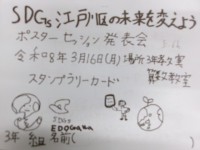 SDGs 江戸川区の未来を変えよう
ポスターセッション発表会
令和8年3月16日(月) 場所 3年各教室
スタンプラリーカード
SDGs
EDOGAWA
3年 組 名前(